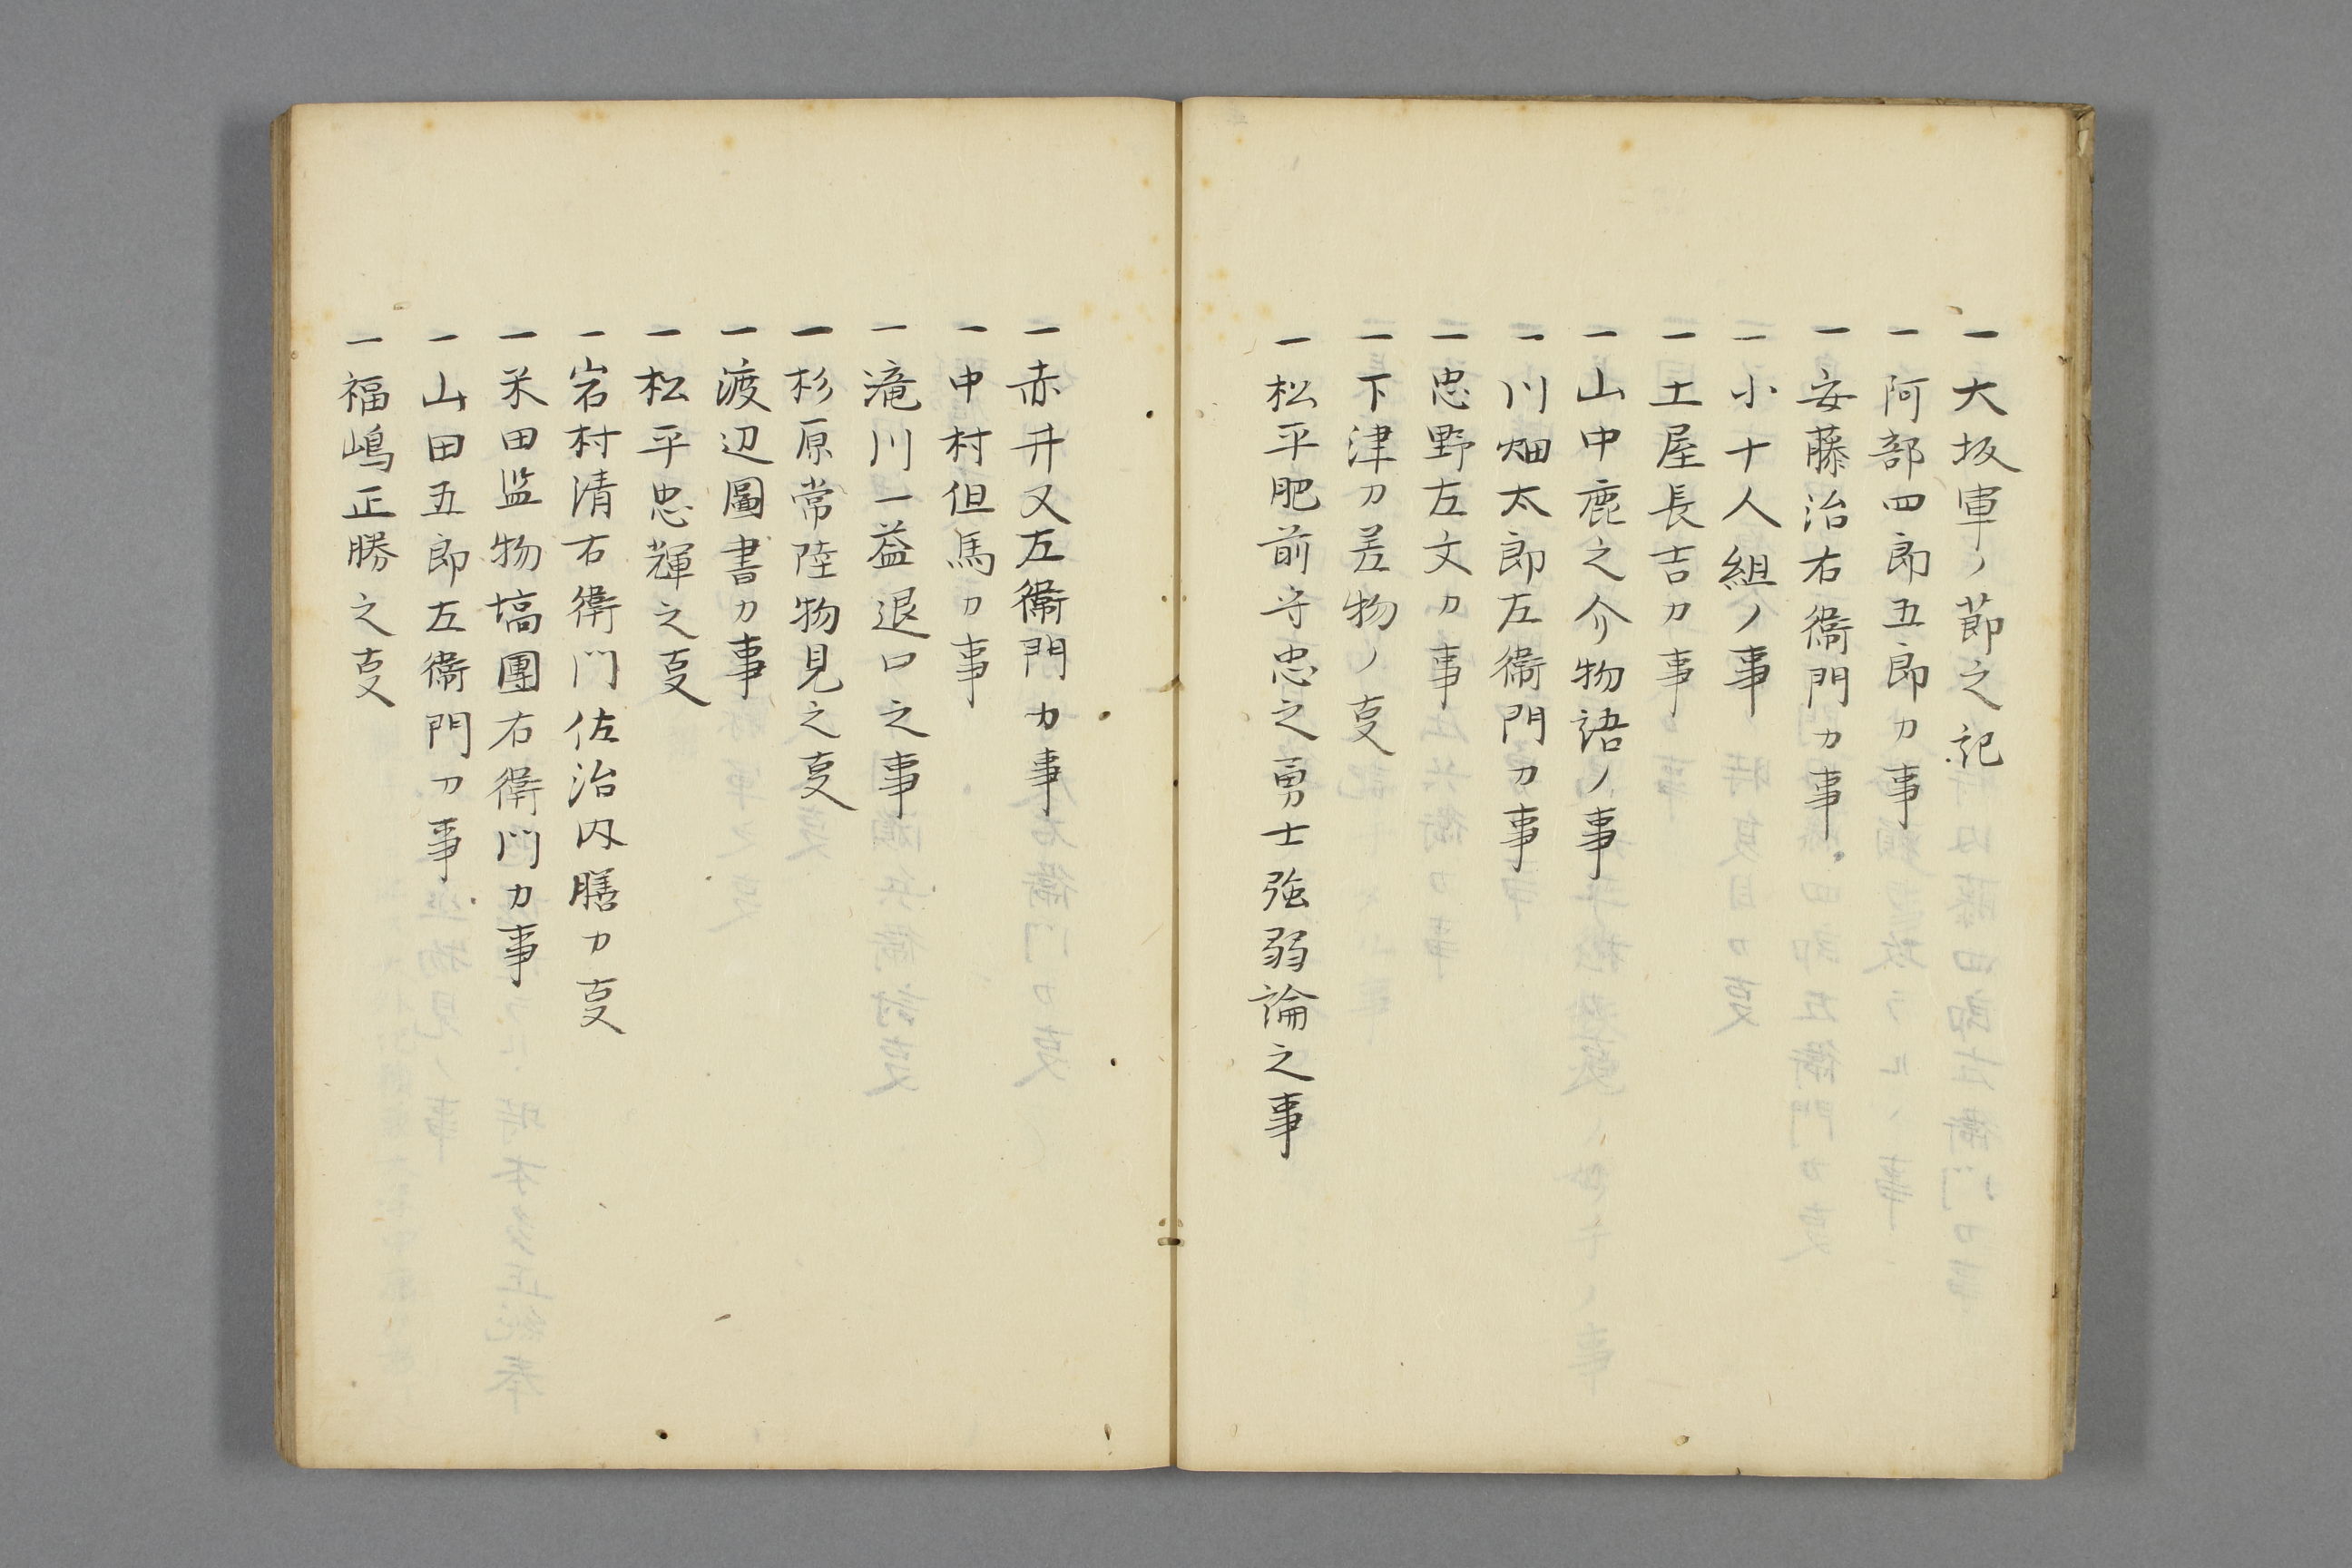 一大坂軍ノ節之記
一阿部四郎五郎カ事
一安藤治右衛門カ事
一小十人組ノ事
一土屋長吉カ事
一山中鹿之介物語ノ事
一川畑太郎左衛門カ事
一忠野左文カ事
一下津カ差物ノ叓
一松平肥前守忠之勇士強弱論之事
一赤井又左衛門カ事
一中村但馬カ事
一滝川一益退口之事
一杉原常陸物見之叓
一渡辺圖書カ事
一松平忠輝之叓
一岩村清右衛門佐治内膳カ叓
一米田監物塙團右衛門カ事
一山田五郎左衛門カ事
一福嶋正勝之叓